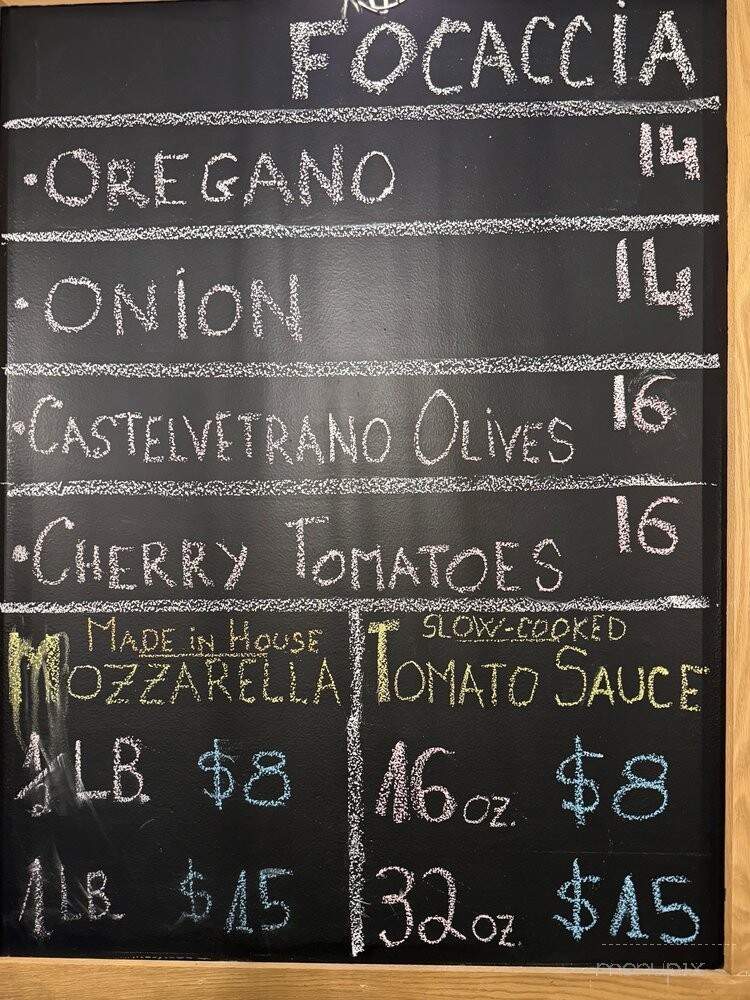 FOCACCIA
·OREGANO 14
·ONION 14
·CASTELVETRANO OLIVES 16
·CHERRY TOMATOES 16
MADE IN HOUSE
MOZZARELLA
1/2 LB $8
1 LB $15
SLOW-COOKED
TOMATO SAUCE
16 oz. $8
32 oz. $15
menupix